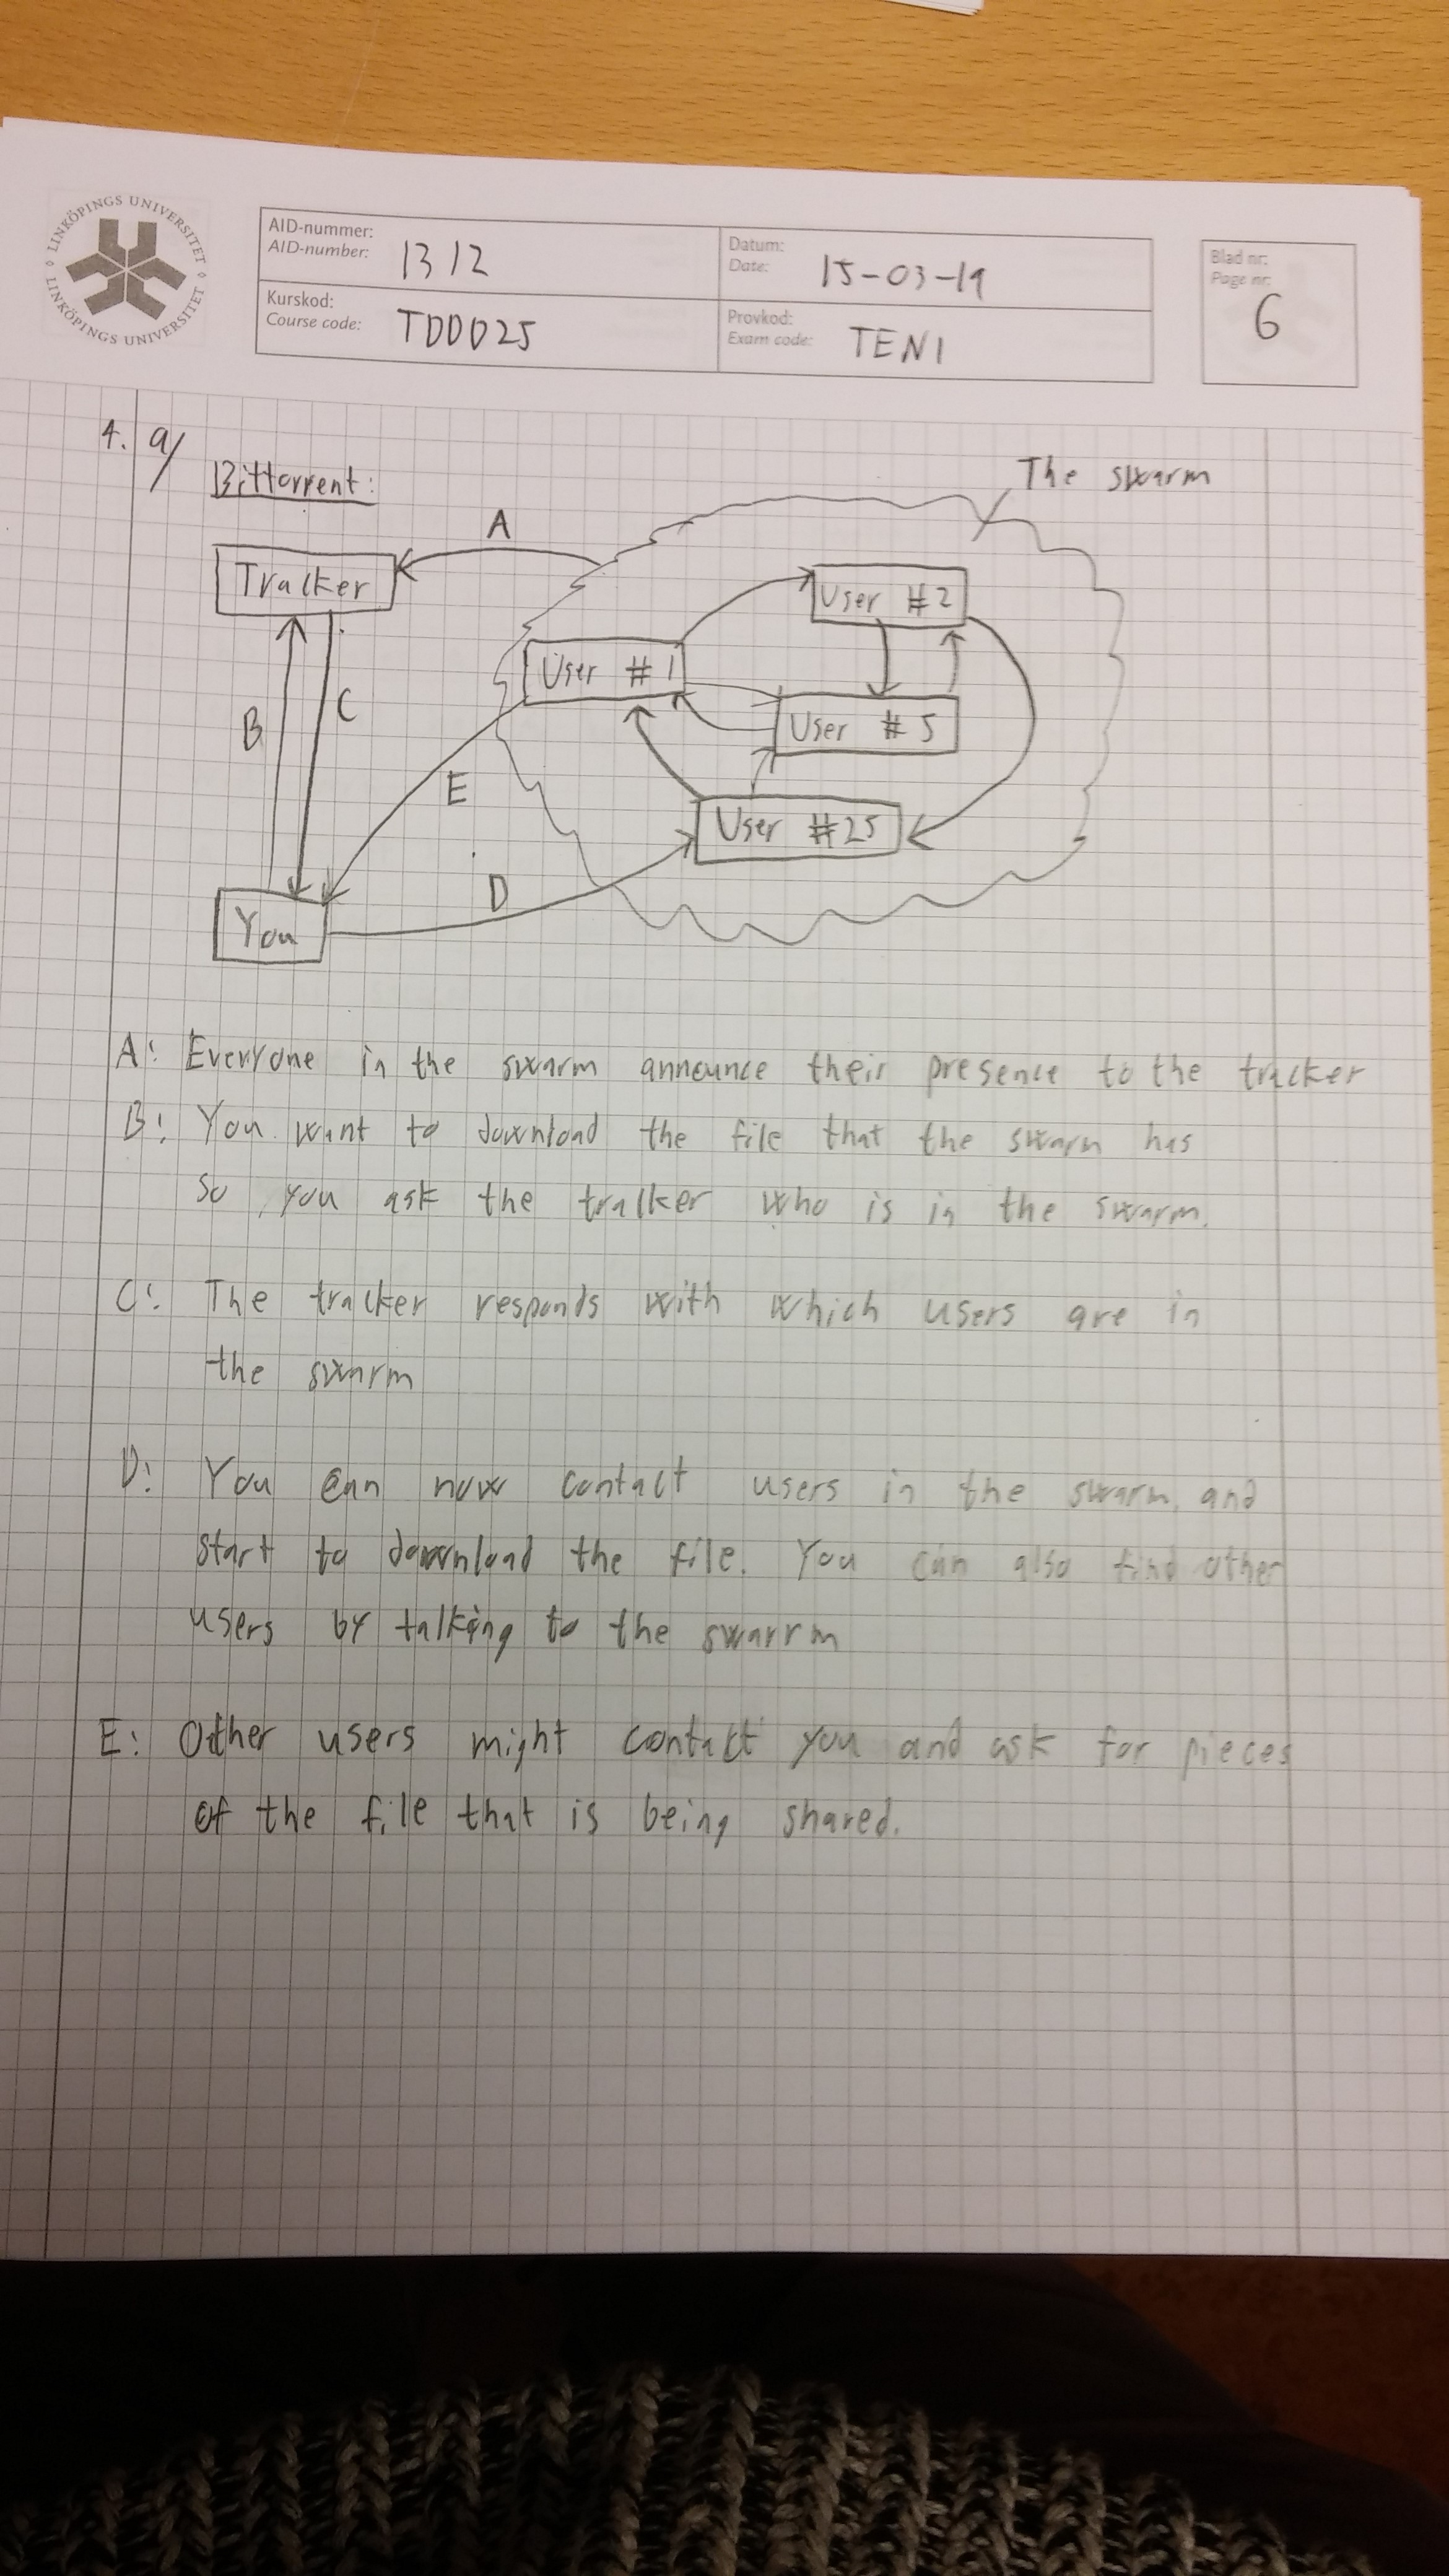 LINKÖPINGS UNIVERSITET
LINKÖPINGS UNIVERSITET
AID-nummer:
AID-number: 1312
Datum:
Date: 15-03-19
Blad nr:
Page nr:
6
Kurskod:
Course code: TDDD25
Provkod:
Exam code: TEN1
4. a/
Bittorrent:
The swarm
A
Tracker
User #2
User #1
B
C
User #5
E
User #25
D
You
A: Everyone in the swarm announce their presence to the tracker
B: You want to download the file that the swarm has
so you ask the tracker who is in the swarm.
C: The tracker responds with which users are in
the swarm
D: You can now contact users in the swarm and
start to download the file. You can also find other
users by talking to the swarrm
E: Other users might contact you and ask for pieces
of the file that is being shared.